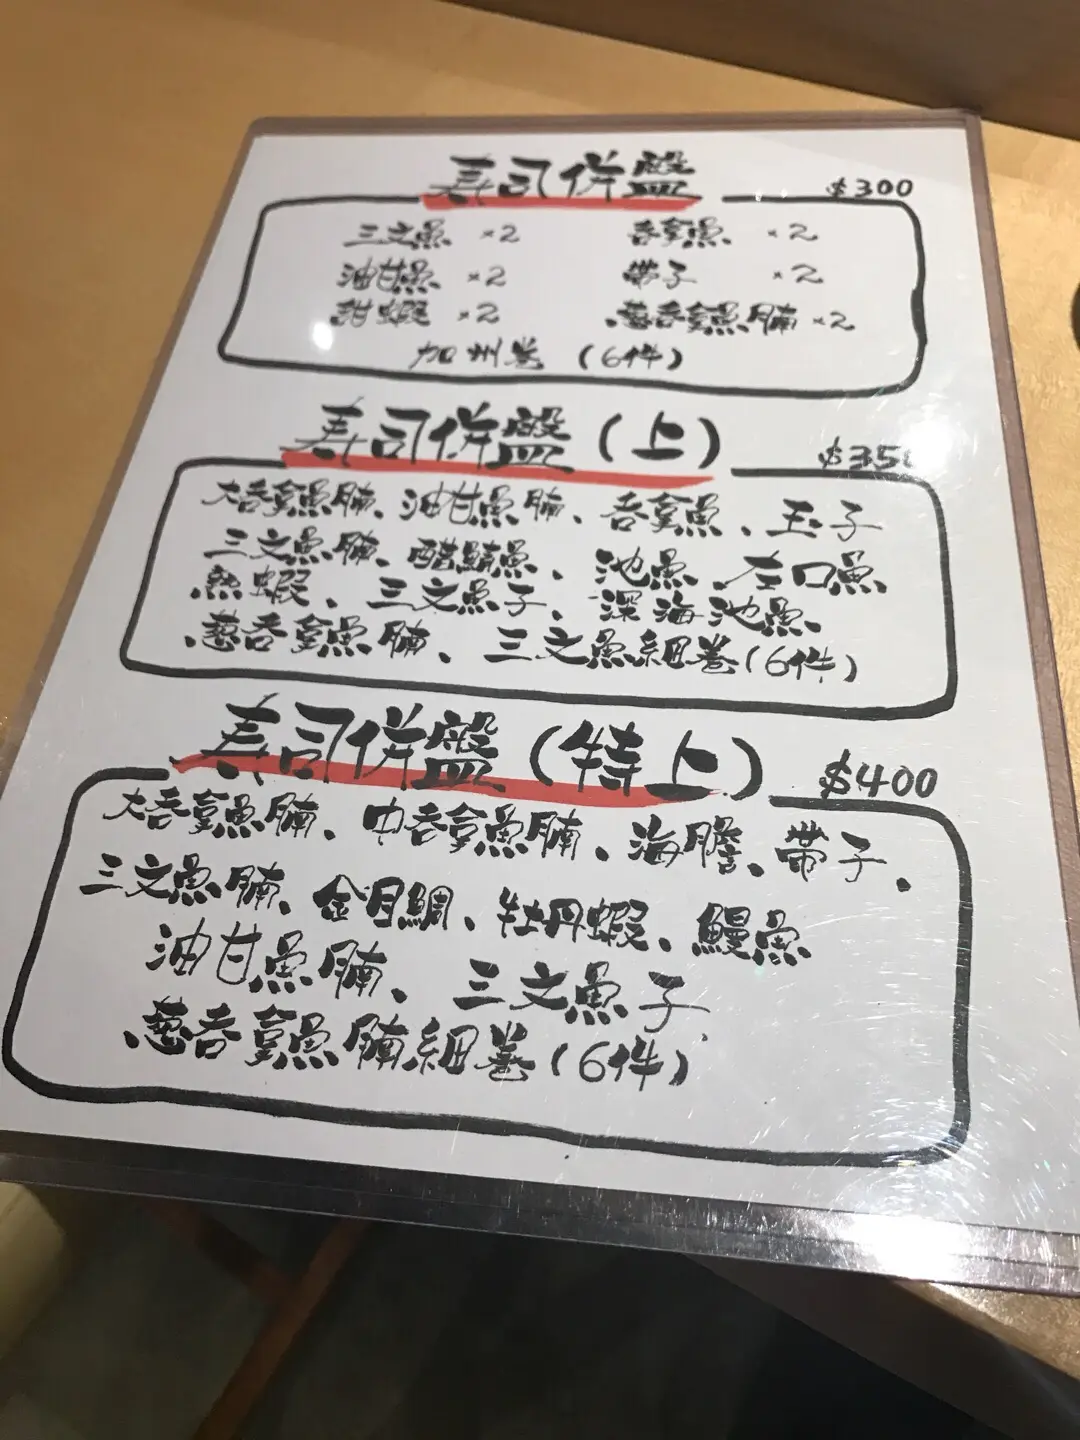 寿司併盤 $300
三文魚 ×2 吞拿魚 ×2
油甘魚 ×2 帶子 ×2
甜蝦 ×2 葱吞拿魚腩 ×2
加州卷 (6件)
寿司併盤 (上) $350
大吞拿魚腩、油甘魚腩、吞拿魚、玉子
三文魚腩、醋鯖魚、池魚 左口魚
熟蝦、三文魚子、深海池魚、
葱吞拿魚腩、三文魚細卷 (6件)
寿司併盤 (特上) $400
大吞拿魚腩、中吞拿魚腩、海膽、帶子、
三文魚腩、金目鯛、牡丹蝦、鰻魚
油甘魚腩、三文魚子
葱吞拿魚腩細卷 (6件)